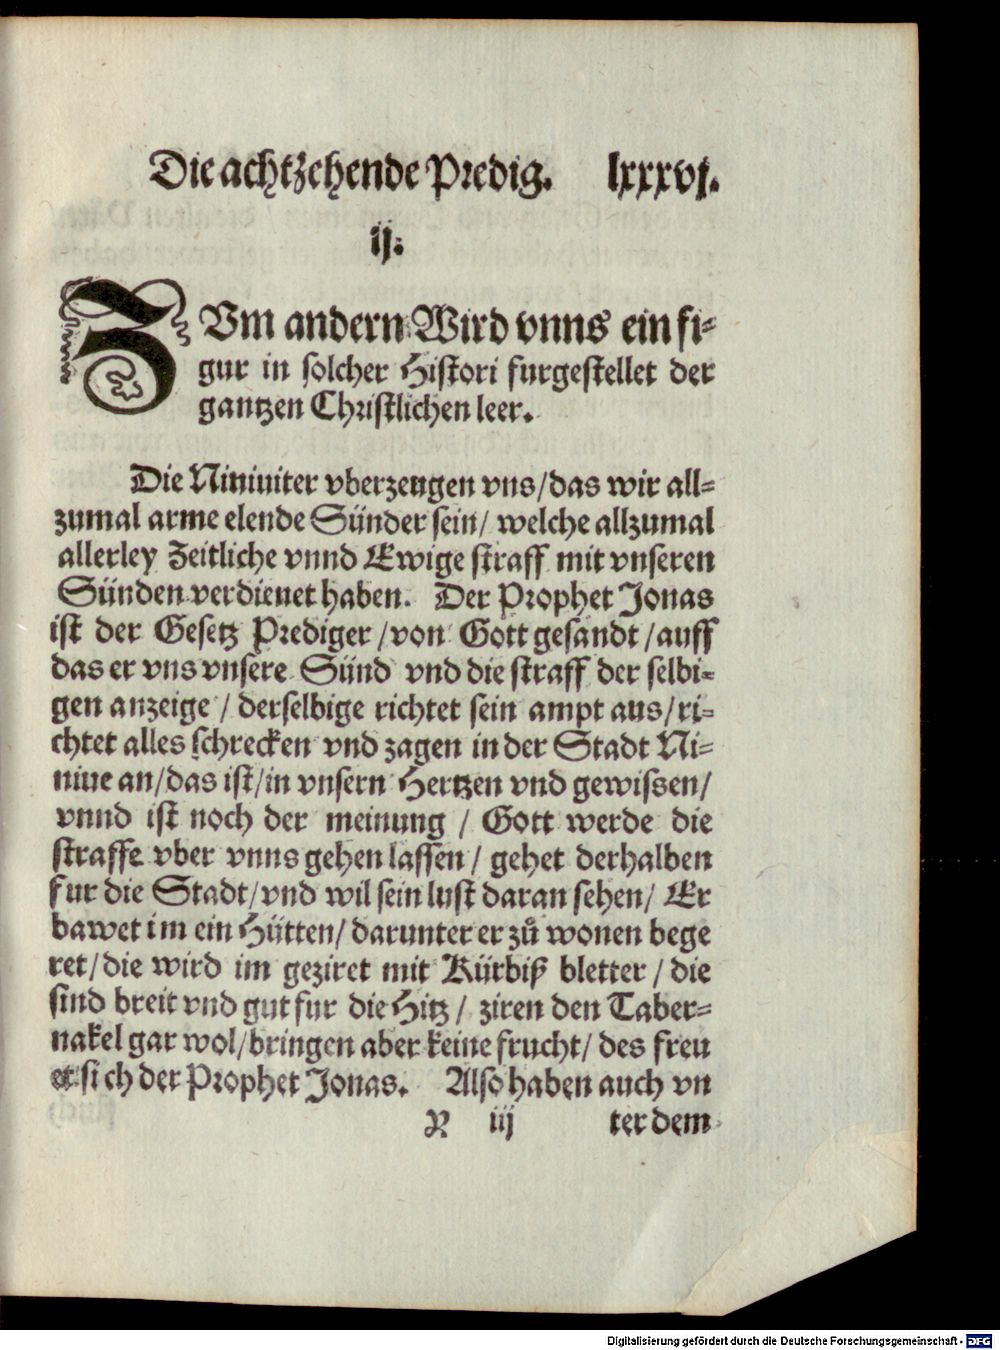 Die achtzehende Predig. lxxxvj.
ij.
ZVm andern Wird vnns ein fi-
gur in solcher Histori furgestellet der
gantzen Christlichen leer.
Die Niniuiter vberzeugen vns/das wir all-
zumal arme elende Sünder sein/ welche allzumal
allerley Zeitliche vnnd Ewige straff mit vnseren
Sünden verdienet haben. Der Prophet Jonas
ist der Gesetz Prediger/von Gott gesandt/auff
das er vns vnsere Sünd vnd die straff der selbi-
gen anzeige / derselbige richtet sein ampt aus/ri-
chtet alles schrecken vnd zagen in der Stadt Ni-
niue an/das ist/in vnsern Hertzen vnd gewissen/
vnnd ist noch der meinung / Gott werde die
straffe vber vnns gehen lassen/ gehet derhalben
fur die Stadt/vnd wil sein lust daran sehen/ Er
bawet im ein Hütten/ darunter er zů wonen bege
ret/die wird im geziret mit Kürbiß bletter/die
sind breit vnd gut fur die Hitz/ ziren den Taber-
nakel gar wol/bringen aber keine frucht/ des freu
et sich der Prophet Jonas. Also haben auch vn
R iij ter dem
Digitalisierung gefördert durch die Deutsche Forschungsgemeinschaft - DFG